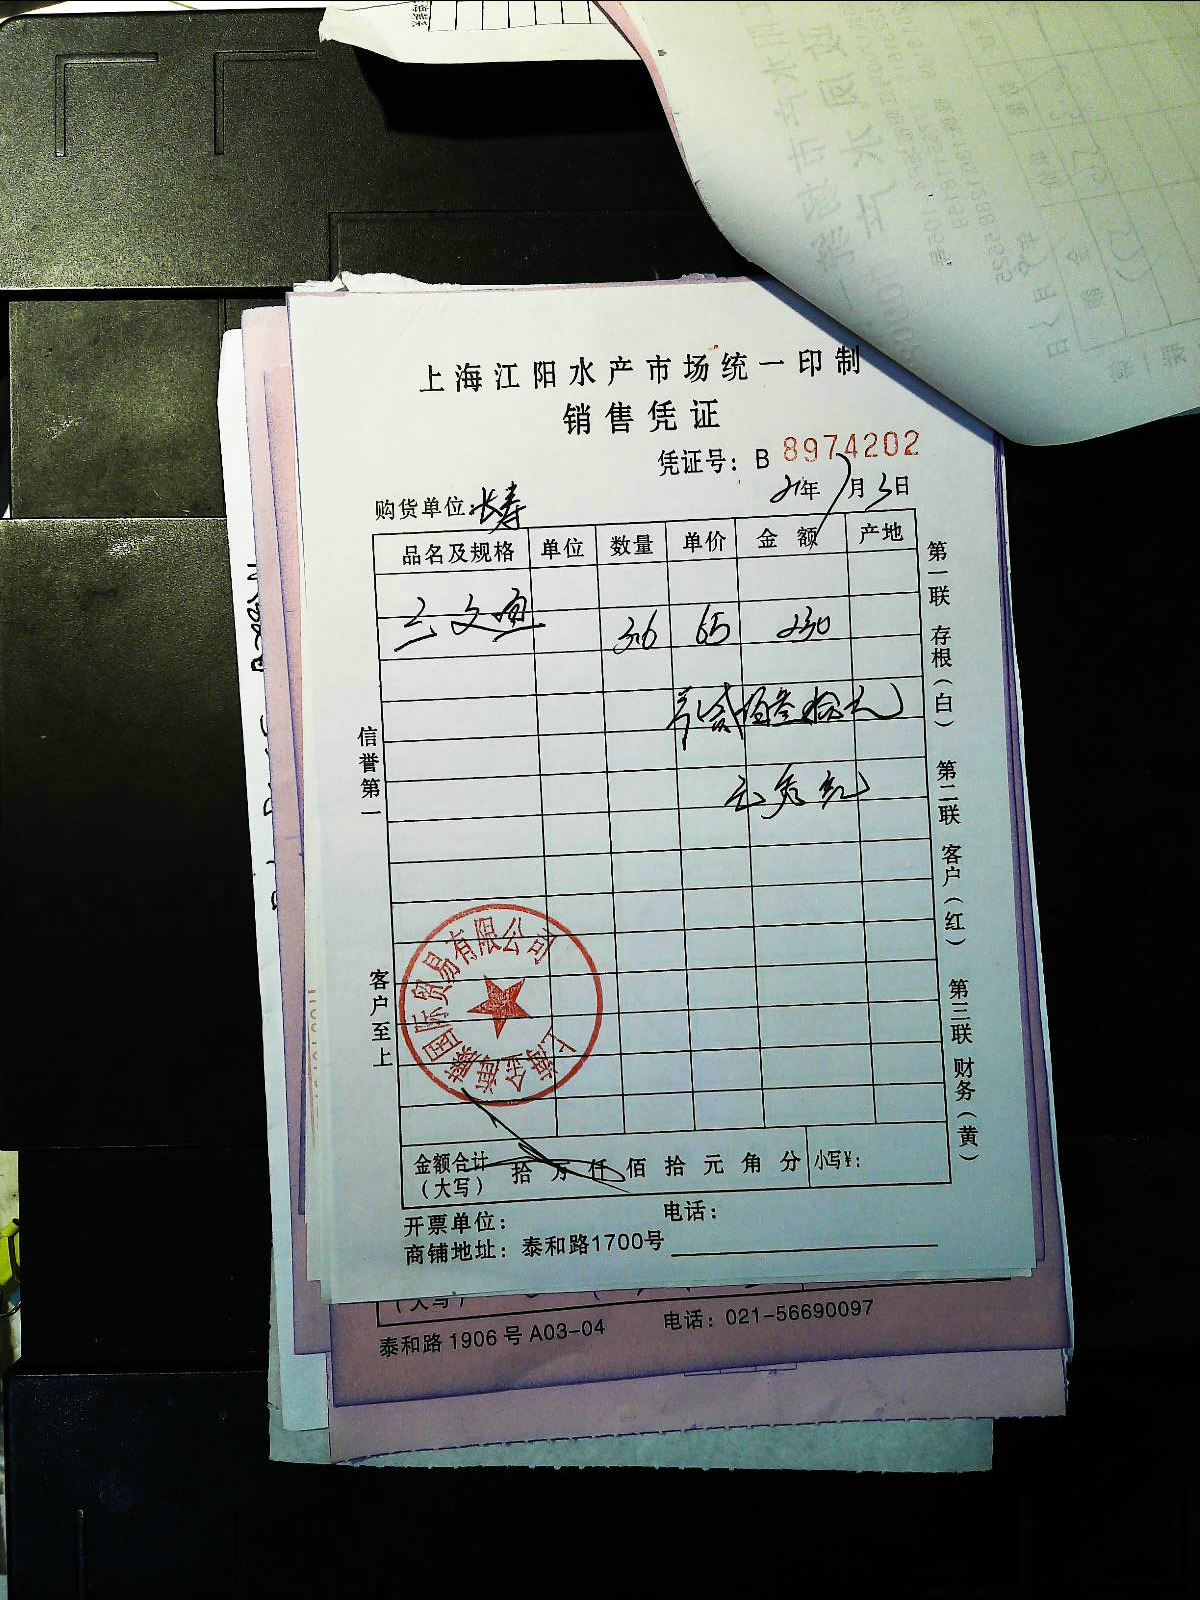 上海江阳水产市场统一印制
销售凭证
凭证号：B 8974202
购货单位 长寿
21年7月3日
品名及规格 单位 数量 单价 金额 产地
三文鱼 3.6 65 230
贰佰叁拾元
信誉第一
客户至上
第一联 存根（白） 第二联 客户（红） 第三联 财务（黄）
国际贸易有限公司
上海
金额合计（大写） 拾万仟佰拾元角分 小写¥：
开票单位： 电话：
商铺地址：泰和路1700号
（大写）
泰和路1906号A03-04 电话：021-56690097